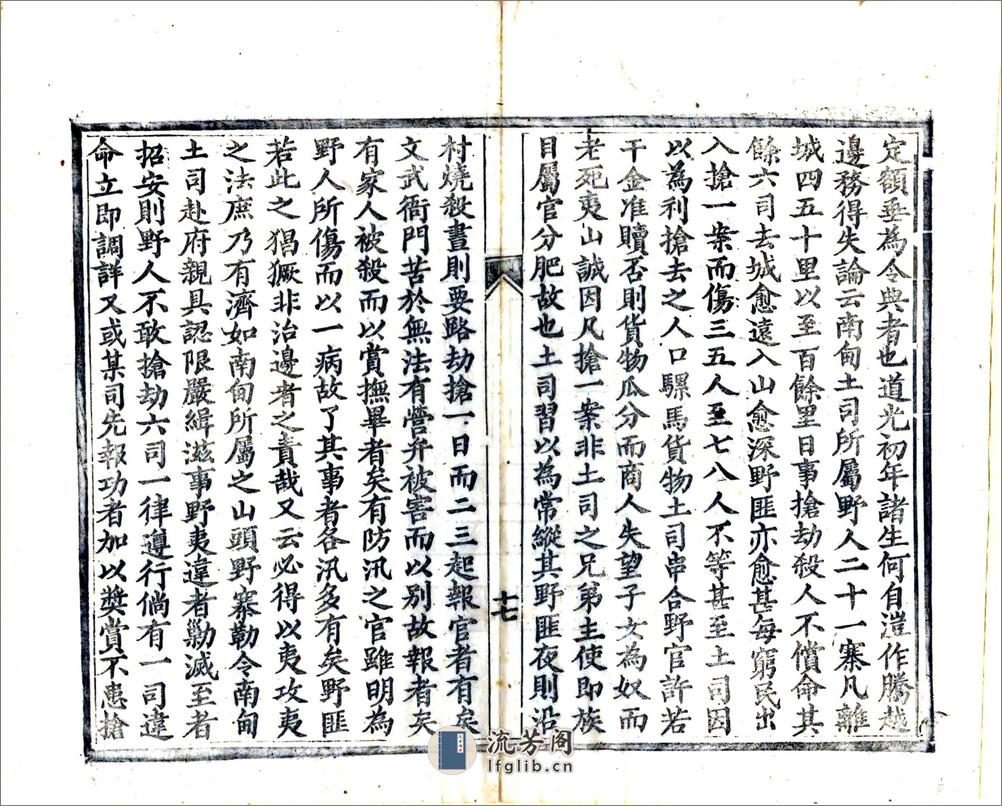 定額垂為令典者也道光初年諸生何自澄作騰越
邊務得失論云南甸土司所屬野人二十一寨凡離
城四五十里以至百餘里日事搶劫殺人不償命其
餘六司去城愈遠入山愈深野匪亦愈甚每窮民出
入搶一案而傷三五人至七八人不等甚至土司因
以為利搶去之人口騾馬貨物土司串合野官許若
干金准贖否則貨物瓜分而商人失望子女為奴而
老死夷山誠因凡搶一案非土司之兄弟主使即族
目屬官分肥故也土司習以為常縱其野匪夜則沿
十七
村燒殺晝則要路劫搶一日而二三起報官者有矣
文武衙門苦於無法有營弁被害而以別故報者矣
有家人被殺而以賞撫畢者矣有防汛之官雖明為
野人所傷而以一病故了其事者各汛多有矣野匪
若此之猖獗非治邊者之責哉又云必得以夷攻夷
之法庶乃有濟如南甸所屬之山頭野寨勒令南甸
土司赴府親具認限嚴緝滋事野夷違者勦滅至者
招安則野人不敢搶劫六司一律遵行倘有一司違
命立即調詳又或某司先報功者加以獎賞不患搶
流芳閣
lfglib.cn